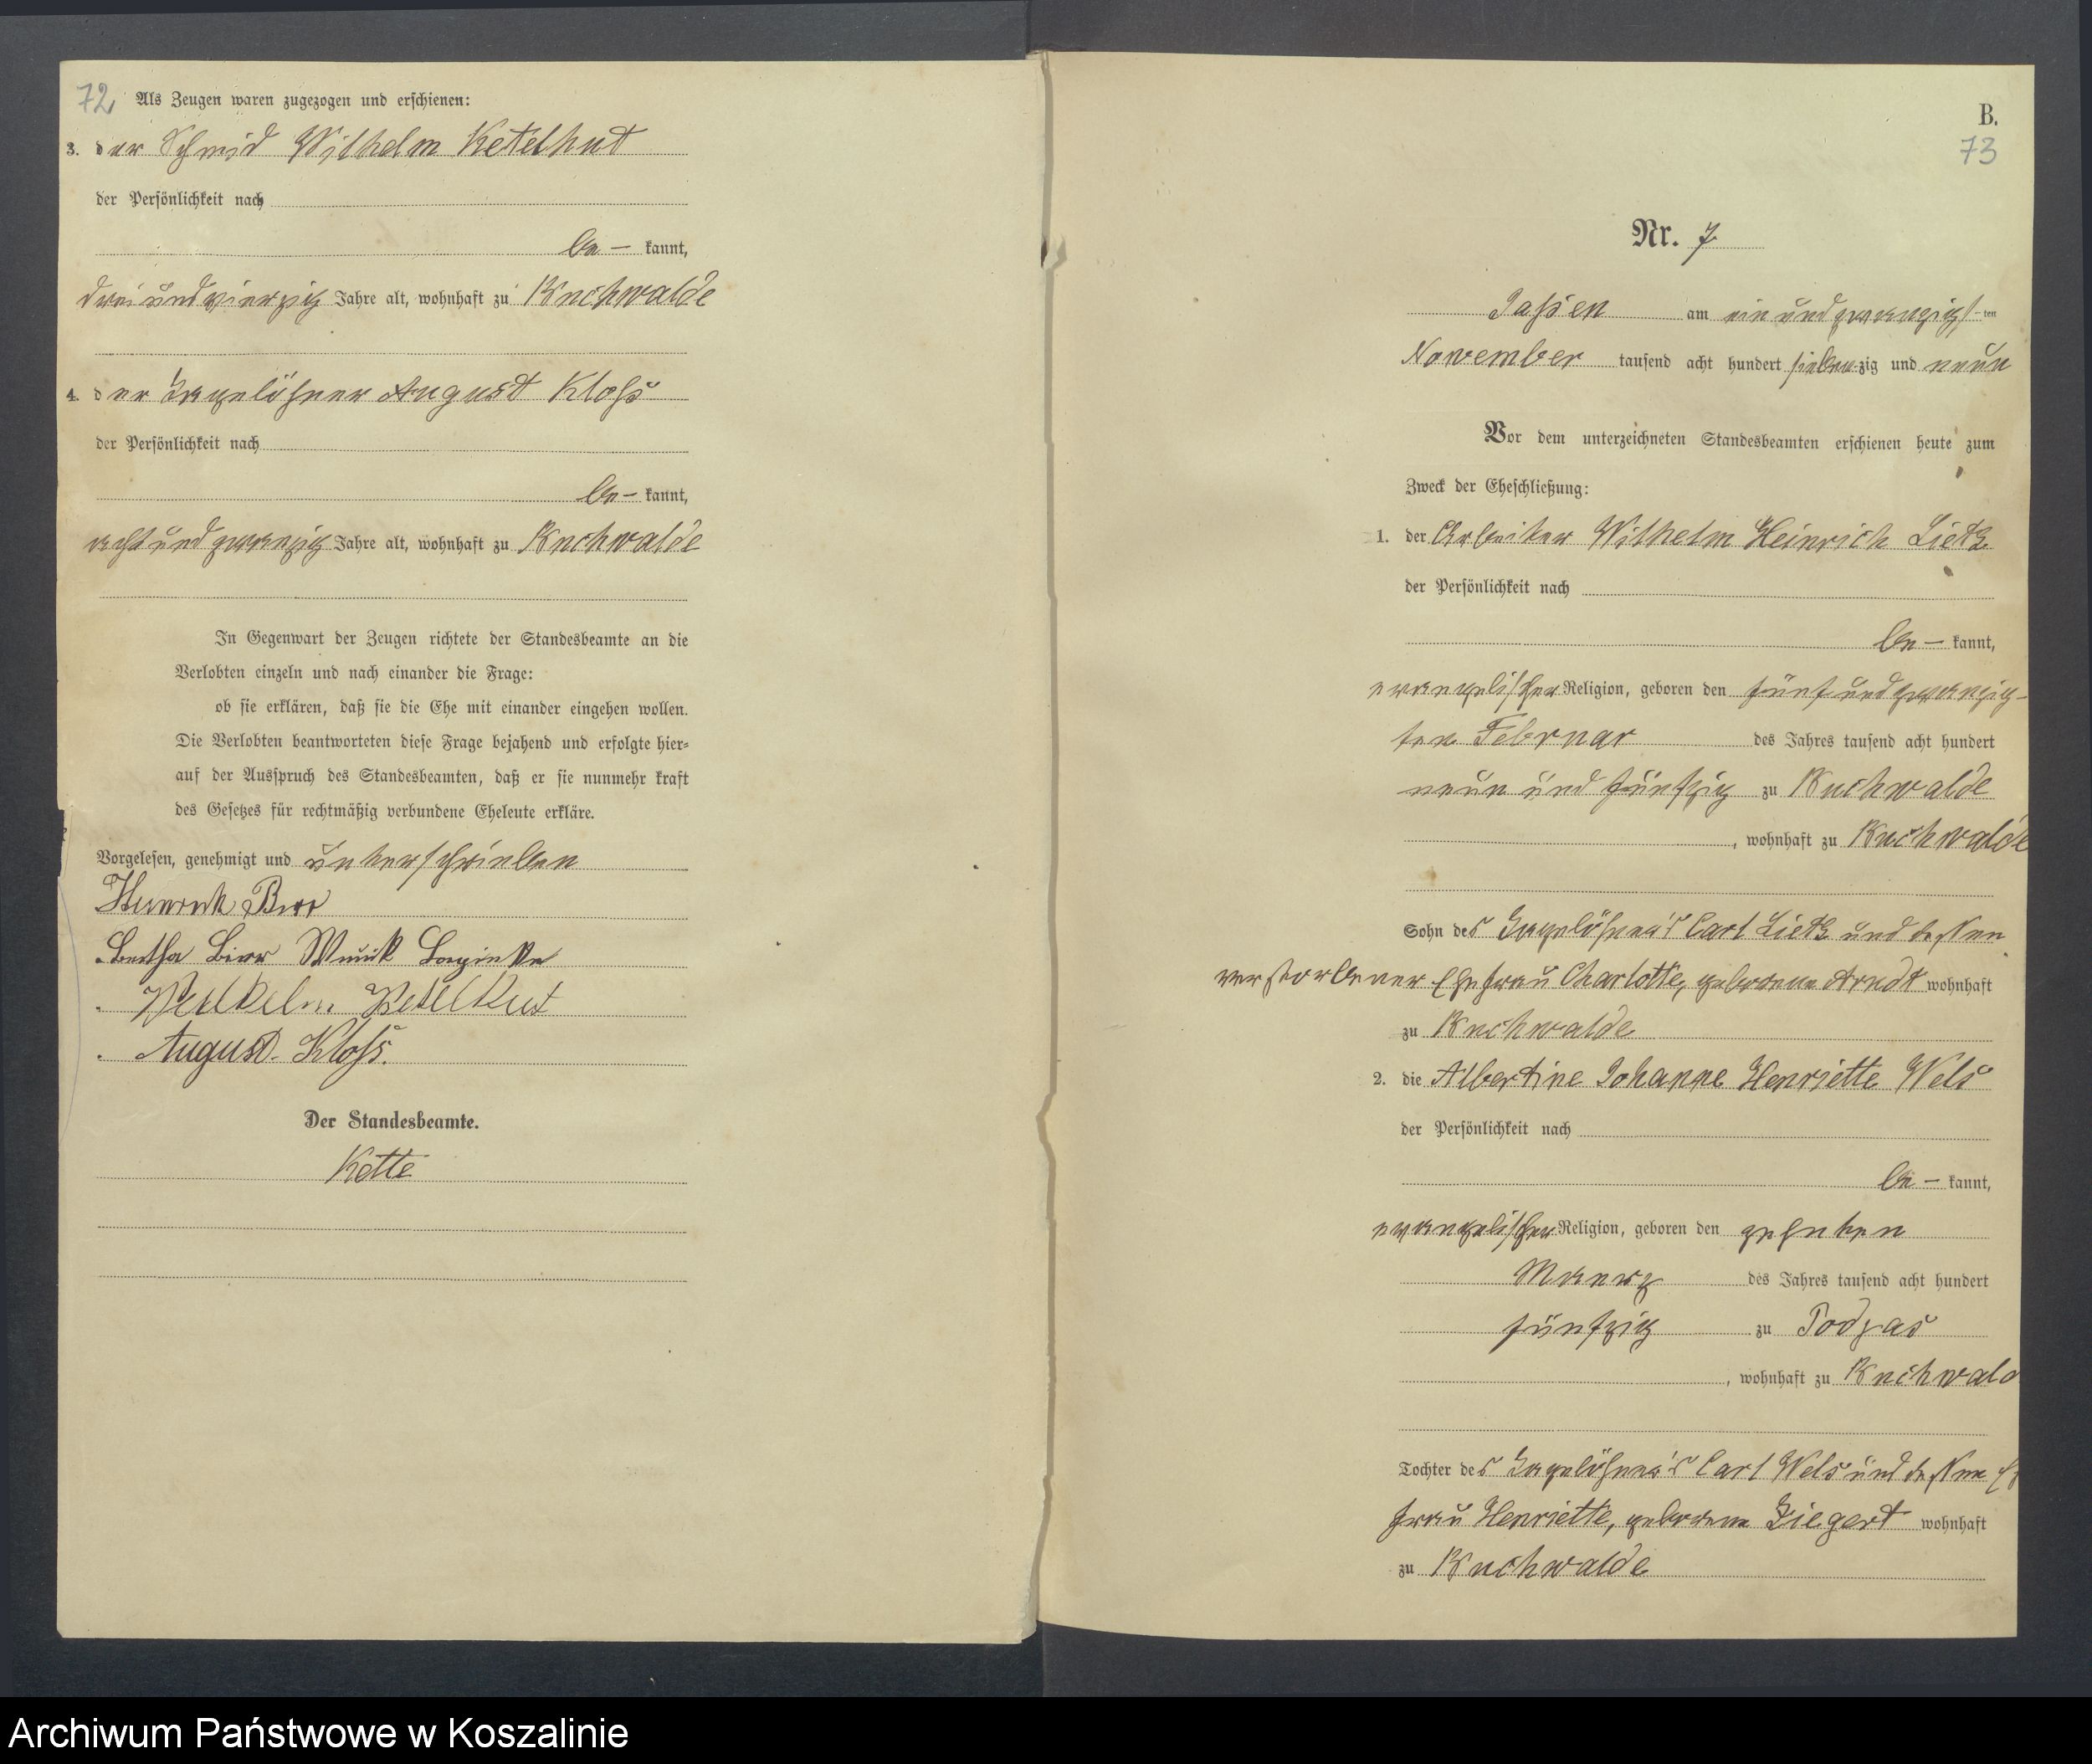 72
Als Zeugen waren zugezogen und erschienen:
3. der Schmid Wilhelm Ketelhut
der Persönlichkeit nach
be- kannt,
dreiundvierzig Jahre alt, wohnhaft zu Buchwalde
4. der Tagelöhner August Kloss
der Persönlichkeit nach
be- kannt,
achtundzwanzig Jahre alt, wohnhaft zu Buchwalde
In Gegenwart der Zeugen richtete der Standesbeamte an die
Verlobten einzeln und nach einander die Frage:
ob sie erklären, daß sie die Ehe mit einander eingehen wollen.
Die Verlobten beantworteten diese Frage bejahend und erfolgte hier=
auf der Ausspruch des Standesbeamten, daß er sie nunmehr kraft
des Gesetzes für rechtmäßig verbundene Eheleute erkläre.
Vorgelesen, genehmigt und unterschrieben
Birr
Bertha Birr
Ketelhut
August Kloss.
Der Standesbeamte.
Kötte
B.
73
Nr. 7
Jassen am einundzwanzigsten
November tausend acht hundert siebenzig und neun
Vor dem unterzeichneten Standesbeamten erschienen heute zum
Zweck der Eheschließung:
1. der Arbeiter Wilhelm Heinrich Lietz
der Persönlichkeit nach
be- kannt,
evangelischer Religion, geboren den fünfundzwanzig-
sten Februar des Jahres tausend acht hundert
neun und fünfzig zu Buchwalde
, wohnhaft zu Buchwalde
Sohn des Tagelöhner's Carl Lietz und dessen
verstorbener Ehefrau Charlotte, geborene Arndt wohnhaft
zu Buchwalde
2. die Albertine Johanne Henriette Wels
der Persönlichkeit nach
be- kannt,
evangelischer Religion, geboren den zehnten
Maerz des Jahres tausend acht hundert
fünfzig zu Podjas
, wohnhaft zu Buchwald
Tochter des Tagelöhner's Carl Wels und dessen Eh
frau Henriette, geborene Ziegert wohnhaft
zu Buchwalde
Archiwum Państwowe w Koszalinie